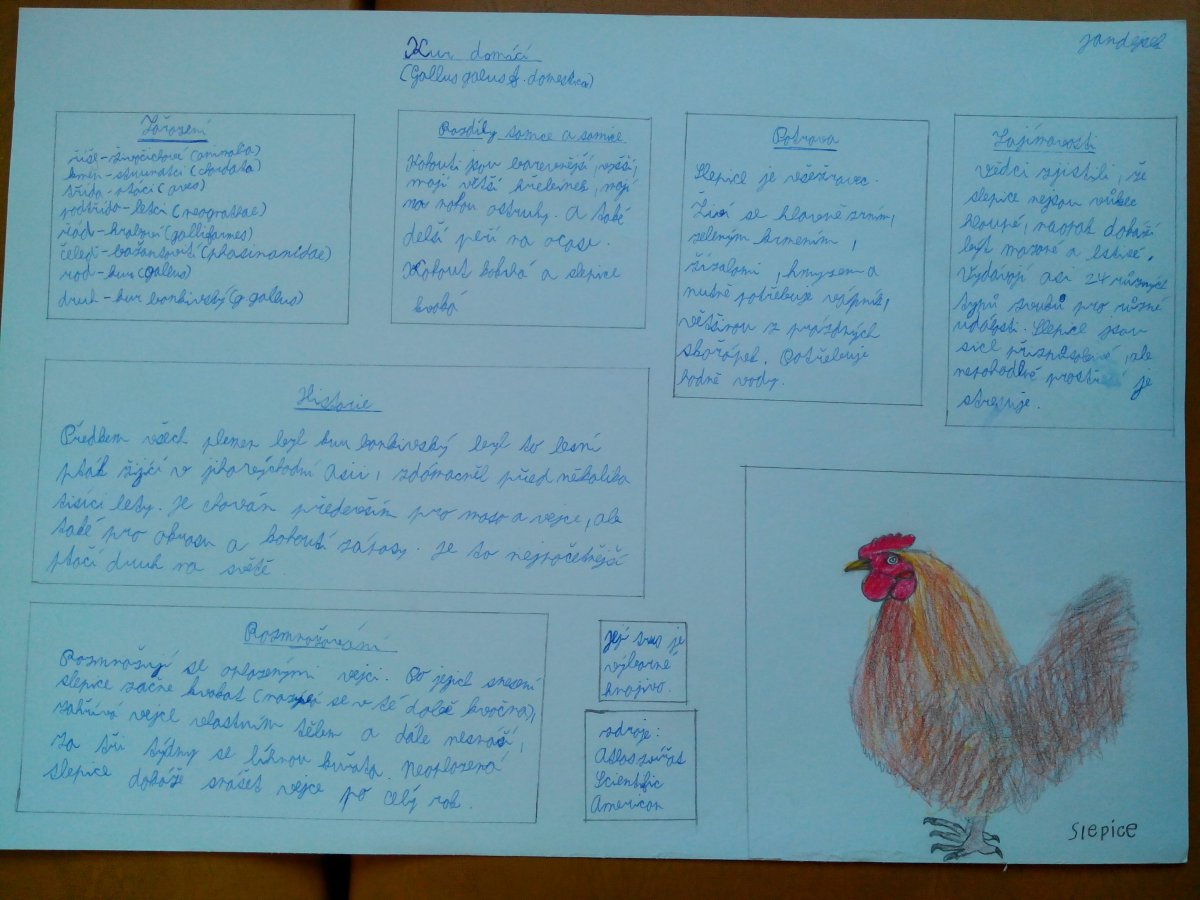 Kur domácí
(Gallus galus f. domestica)
Zařazení
říše-živočichové (animalia)
kmen-strunatci (chordata)
třída-ptáci (aves)
podtřída-letci (neognathae)
řád-hrabaví (galliformes)
čeleď-bažantovití (phasinanidae)
rod-kur (gallus)
druh-kur bankivský (g. gallus)
Rozdíly samce a samice
Kohouti jsou barevnější, vyšší,
mají větší hřebínek, mají
na nohou ostruhy. A také
delší peří na ocase.
Kohout kokrhá a slepice
kvoká
Potrava
Slepice je všežravec.
Živí se hlavně zrním,
zeleným krmením,
žížalami, hmyzem a
nutně potřebuje vápník,
většinou z prázdných
skořápek. Potřebuje
hodně vody.
Zajímavosti
Vědci zjistili, že
slepice nejsou vůbec
hloupé, naopak dokáží
být mazané a lstivé.
Vydávají asi 24 různých
typů zvuků pro různé
události. Slepice jsou
sice přizpůsobivé, ale
nepohodlné prostředí je
stresuje.
Historie
Předkem všech plemen byl kur bankivský byl to lesní
pták žijící v jihovýchodní Asii, zdomácněl před několika
tisíci lety. Je chován především pro maso a vejce, ale
také pro okrasu a kohoutí zápasy. Je to nejpočetnější
ptačí druh na světě.
Rozmnožování
Rozmnožují se oplozenými vejci. Po jejich snesení
slepice začne kvokat (nazývá se v té době kvočna),
zahřívá vejce vlastním tělem a dále nesnáší,
Za tři týdny se líhnou kuřata. Neoplozená
slepice dokáže snášet vejce po celý rok.
Její trus je
výborné
hnojivo.
zdroje:
Atlas zvířat
Scientific
American
Slepice